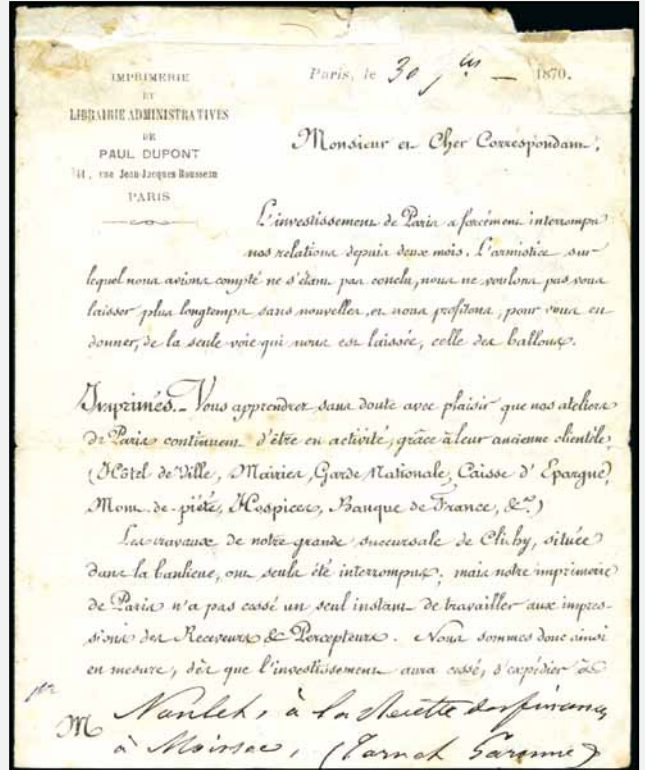 IMPRIMERIE
ET
LIBRAIRIE ADMINISTRATIVES
DE
PAUL DUPONT
41, rue Jean-Jacques Rousseau
PARIS
Paris, le 30 9bre 1870.
Monsieur et Cher Correspondant,
L'investissement de Paris a forcément interrompu
nos relations depuis deux mois. L'armistice sur
lequel nous avions compté ne s'étant pas conclu, nous ne voulons pas vous
laisser plus longtemps sans nouvelles, et nous profitons, pour vous en
donner, de la seule voie qui nous est laissée, celle des ballons.
Imprimés. - Vous apprendrez sans doute avec plaisir que nos ateliers
de Paris continuent d'être en activité, grâce à leur ancienne clientèle,
(Hôtel de Ville, Mairies, Garde Nationale, Caisse d'Epargne,
Mont-de-piété, Hospices, Banque de France, &a.)
Les travaux de notre grande succursale de Clichy, située
dans la banlieue, ont seuls été interrompus; mais notre imprimerie
de Paris n'a pas cessé un seul instant de travailler aux impres-
sions des Receveurs & Percepteurs. Nous sommes donc ainsi
en mesure, dès que l'investissement aura cessé, d'expédier
M Naulet, à la Recette des finances
à Moissac, (Tarn et Garonne)